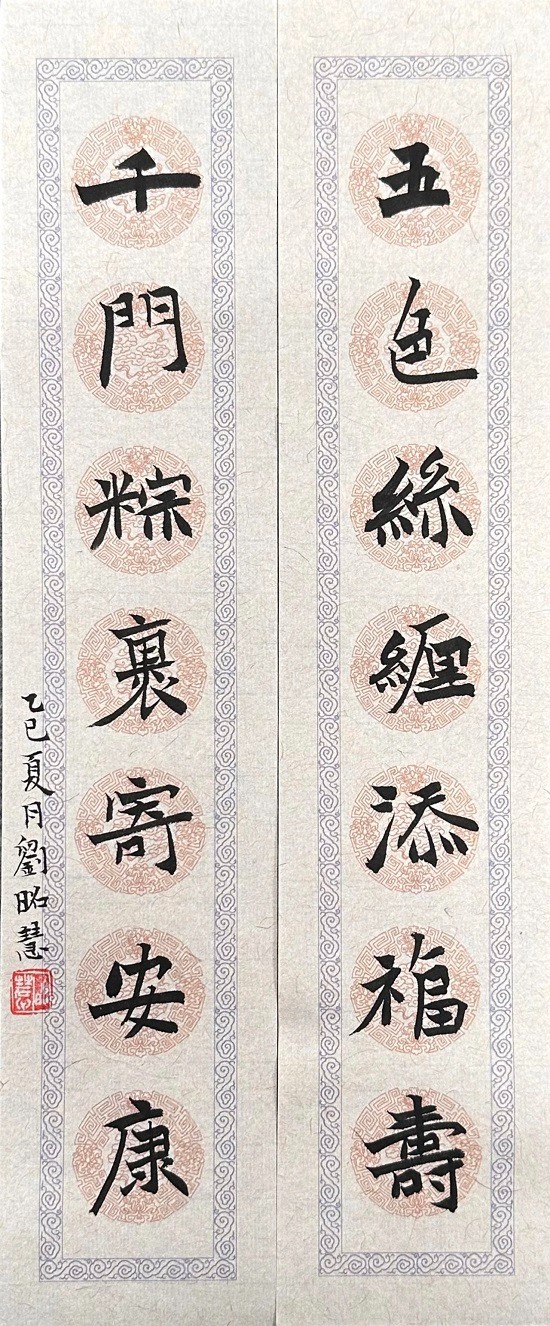 五色絲纏添福壽
千門粽裹寄安康
乙巳夏月劉昭慧